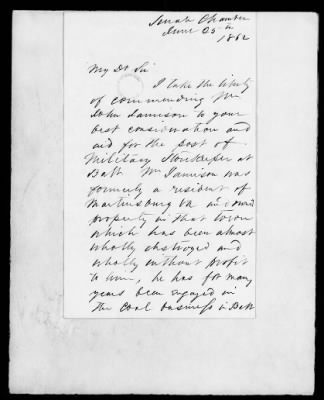 Senate Chamber
June 25th
1862
My Dr Sir
I take the liberty
of commending Mr
John Jamison to your
best consideration and
aid for the post of
Military Storekeeper at
Balt. Mr Jamison was
formerly a resident of
Martinsburg Va and owned
property in that town
which has been almost
wholly destroyed and
wholly without profit
to him, he has for many
years been engaged in
the Coal business in Balt